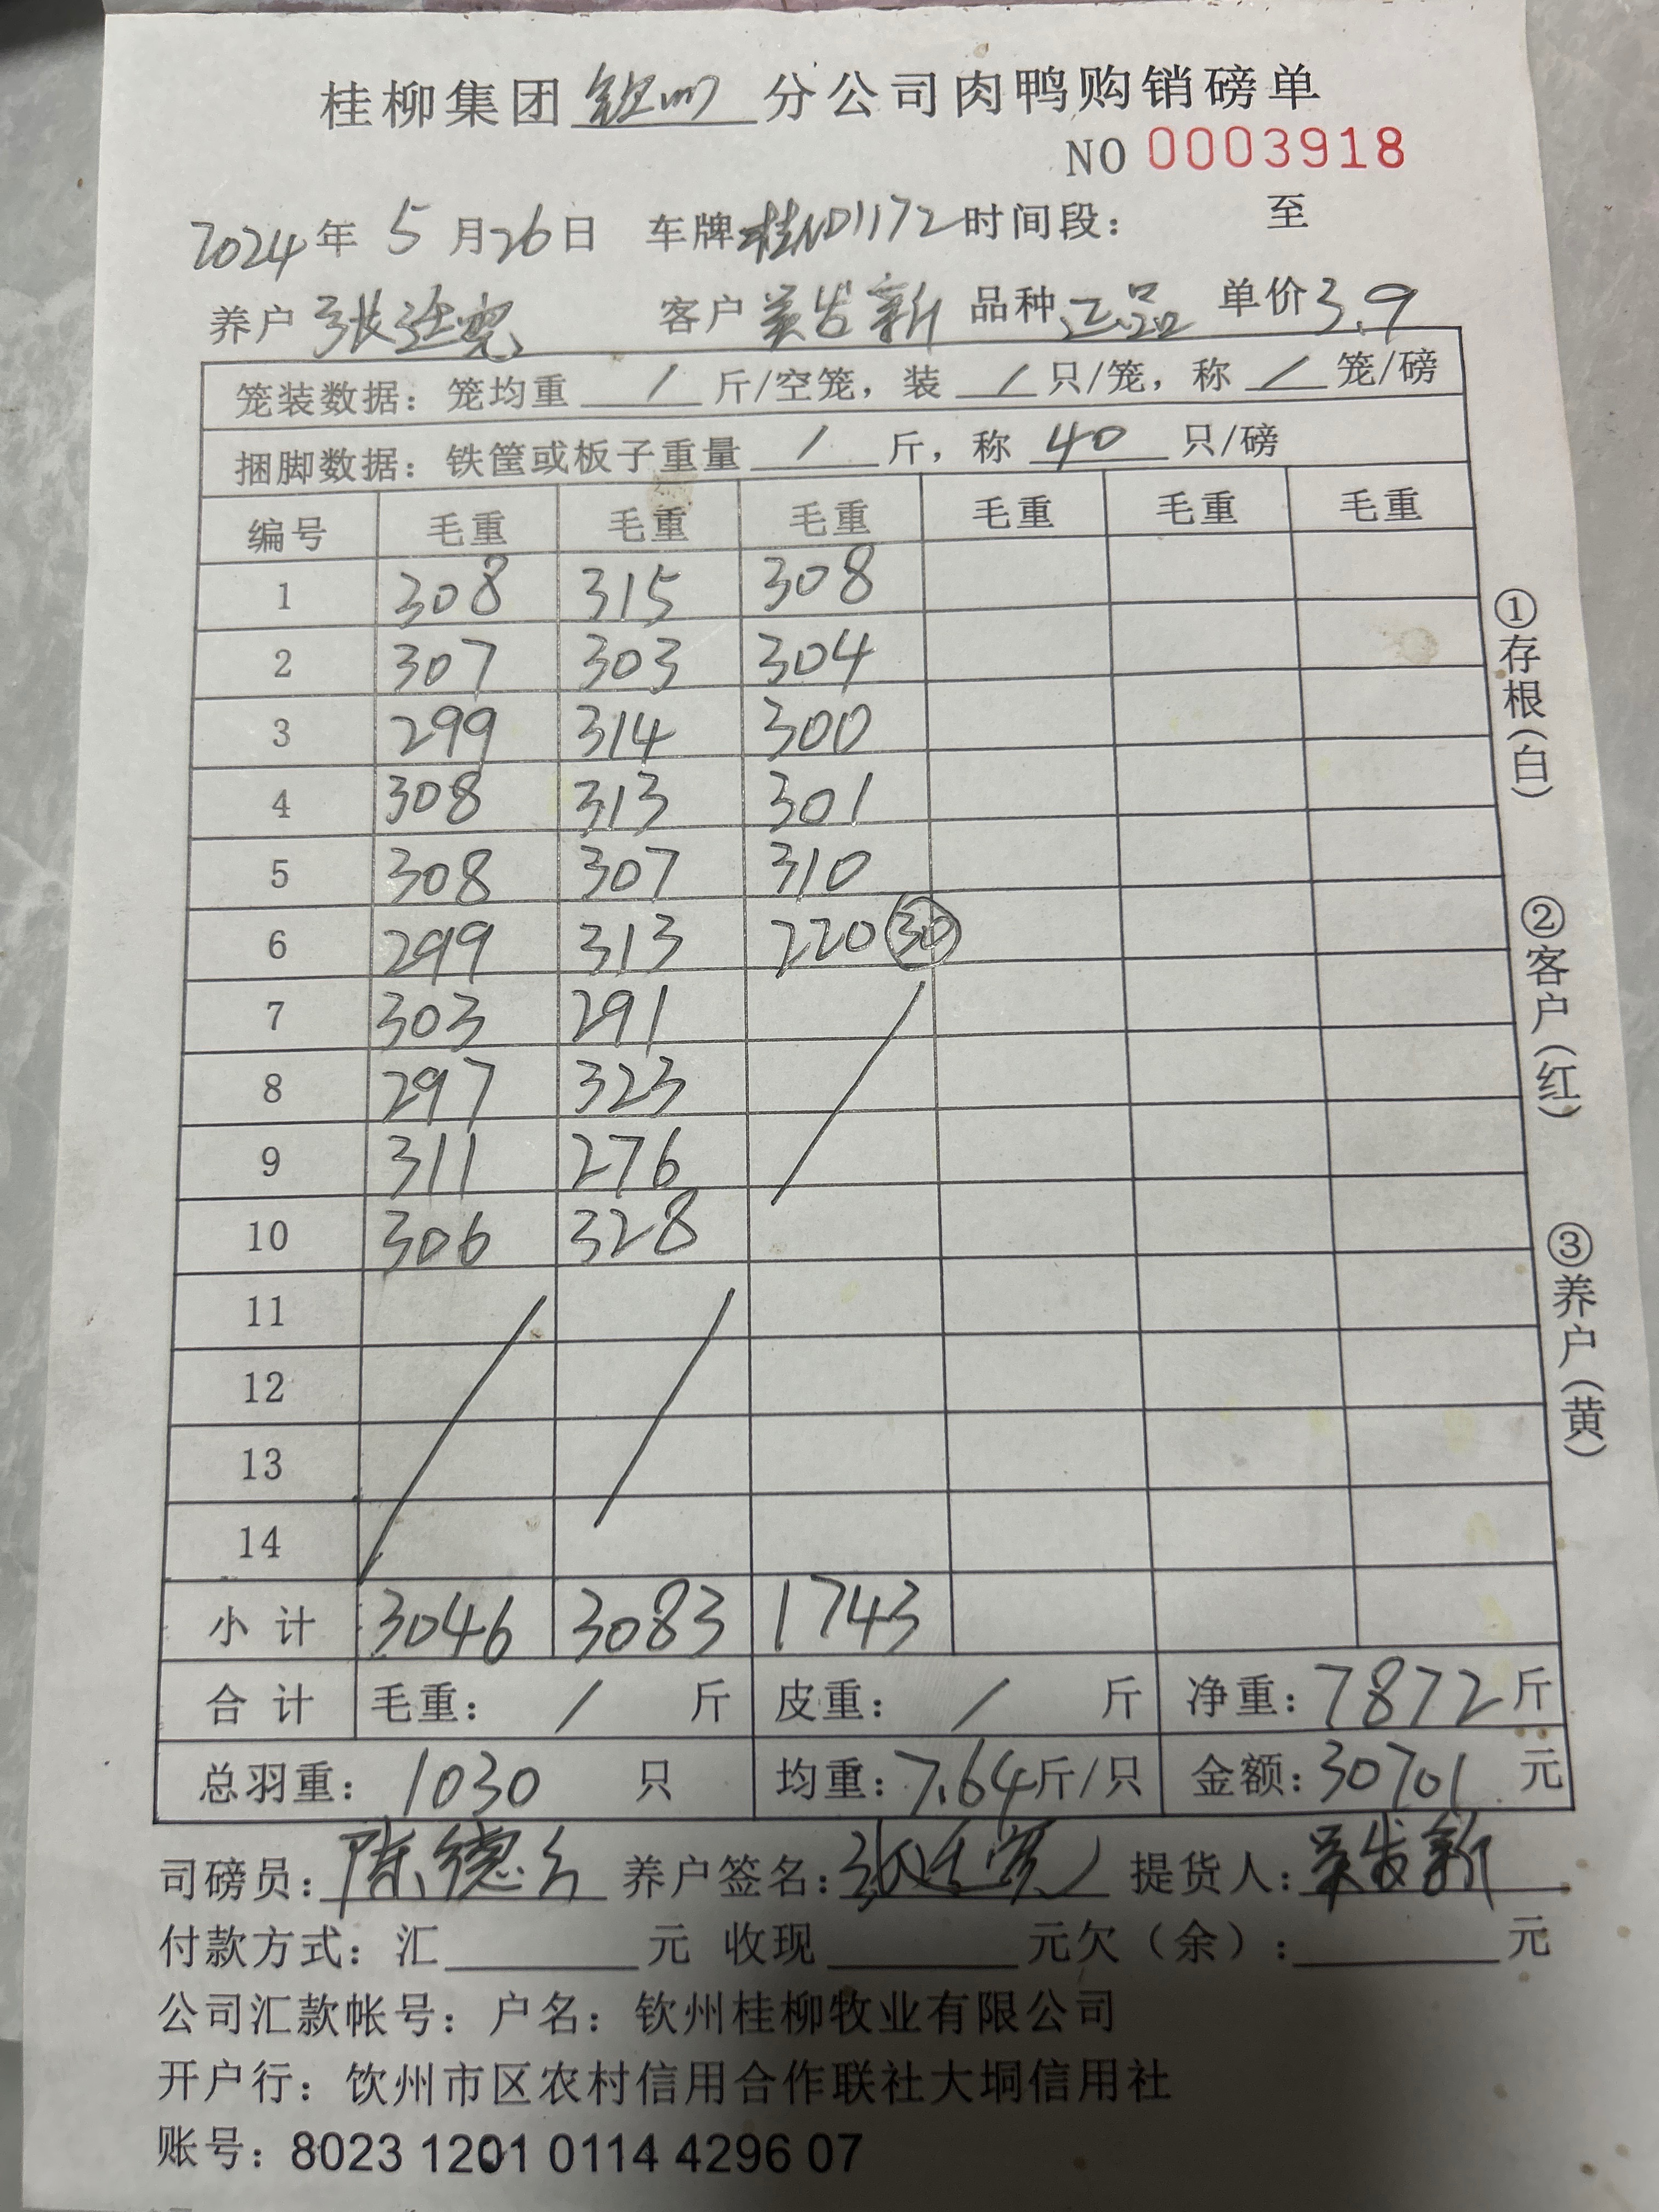 桂柳集团 钦州 分公司肉鸭购销磅单
NO 0003918
2024年 5 月26日 车牌桂ND1172时间段： 至
养户 张廷宽 客户 吴发新 品种 正品 单价3.9
笼装数据：笼均重 / 斤/空笼，装 / 只/笼，称 / 笼/磅
捆脚数据：铁筐或板子重量 / 斤，称 40 只/磅
编号 毛重 毛重 毛重 毛重 毛重 毛重
1 308 315 308
2 307 303 304
3 299 314 300
4 308 313 301
5 308 307 310
6 299 313 220 30
7 303 291
8 297 323
9 311 276
10 306 328
11
12
13
14
小计 3046 3083 1743
合计 毛重： / 斤 皮重： / 斤 净重：7872斤
总羽重： 1030 只 均重：7.64斤/只 金额：30701 元
司磅员：陈德 养户签名：张廷宽 提货人：吴发新
付款方式：汇 元 收现 元欠（余）： 元
公司汇款帐号：户名：钦州桂柳牧业有限公司
开户行：钦州市区农村信用合作联社大垌信用社
账号：8023 1201 0114 4296 07
①存根（白）
②客户（红）
③养户（黄）